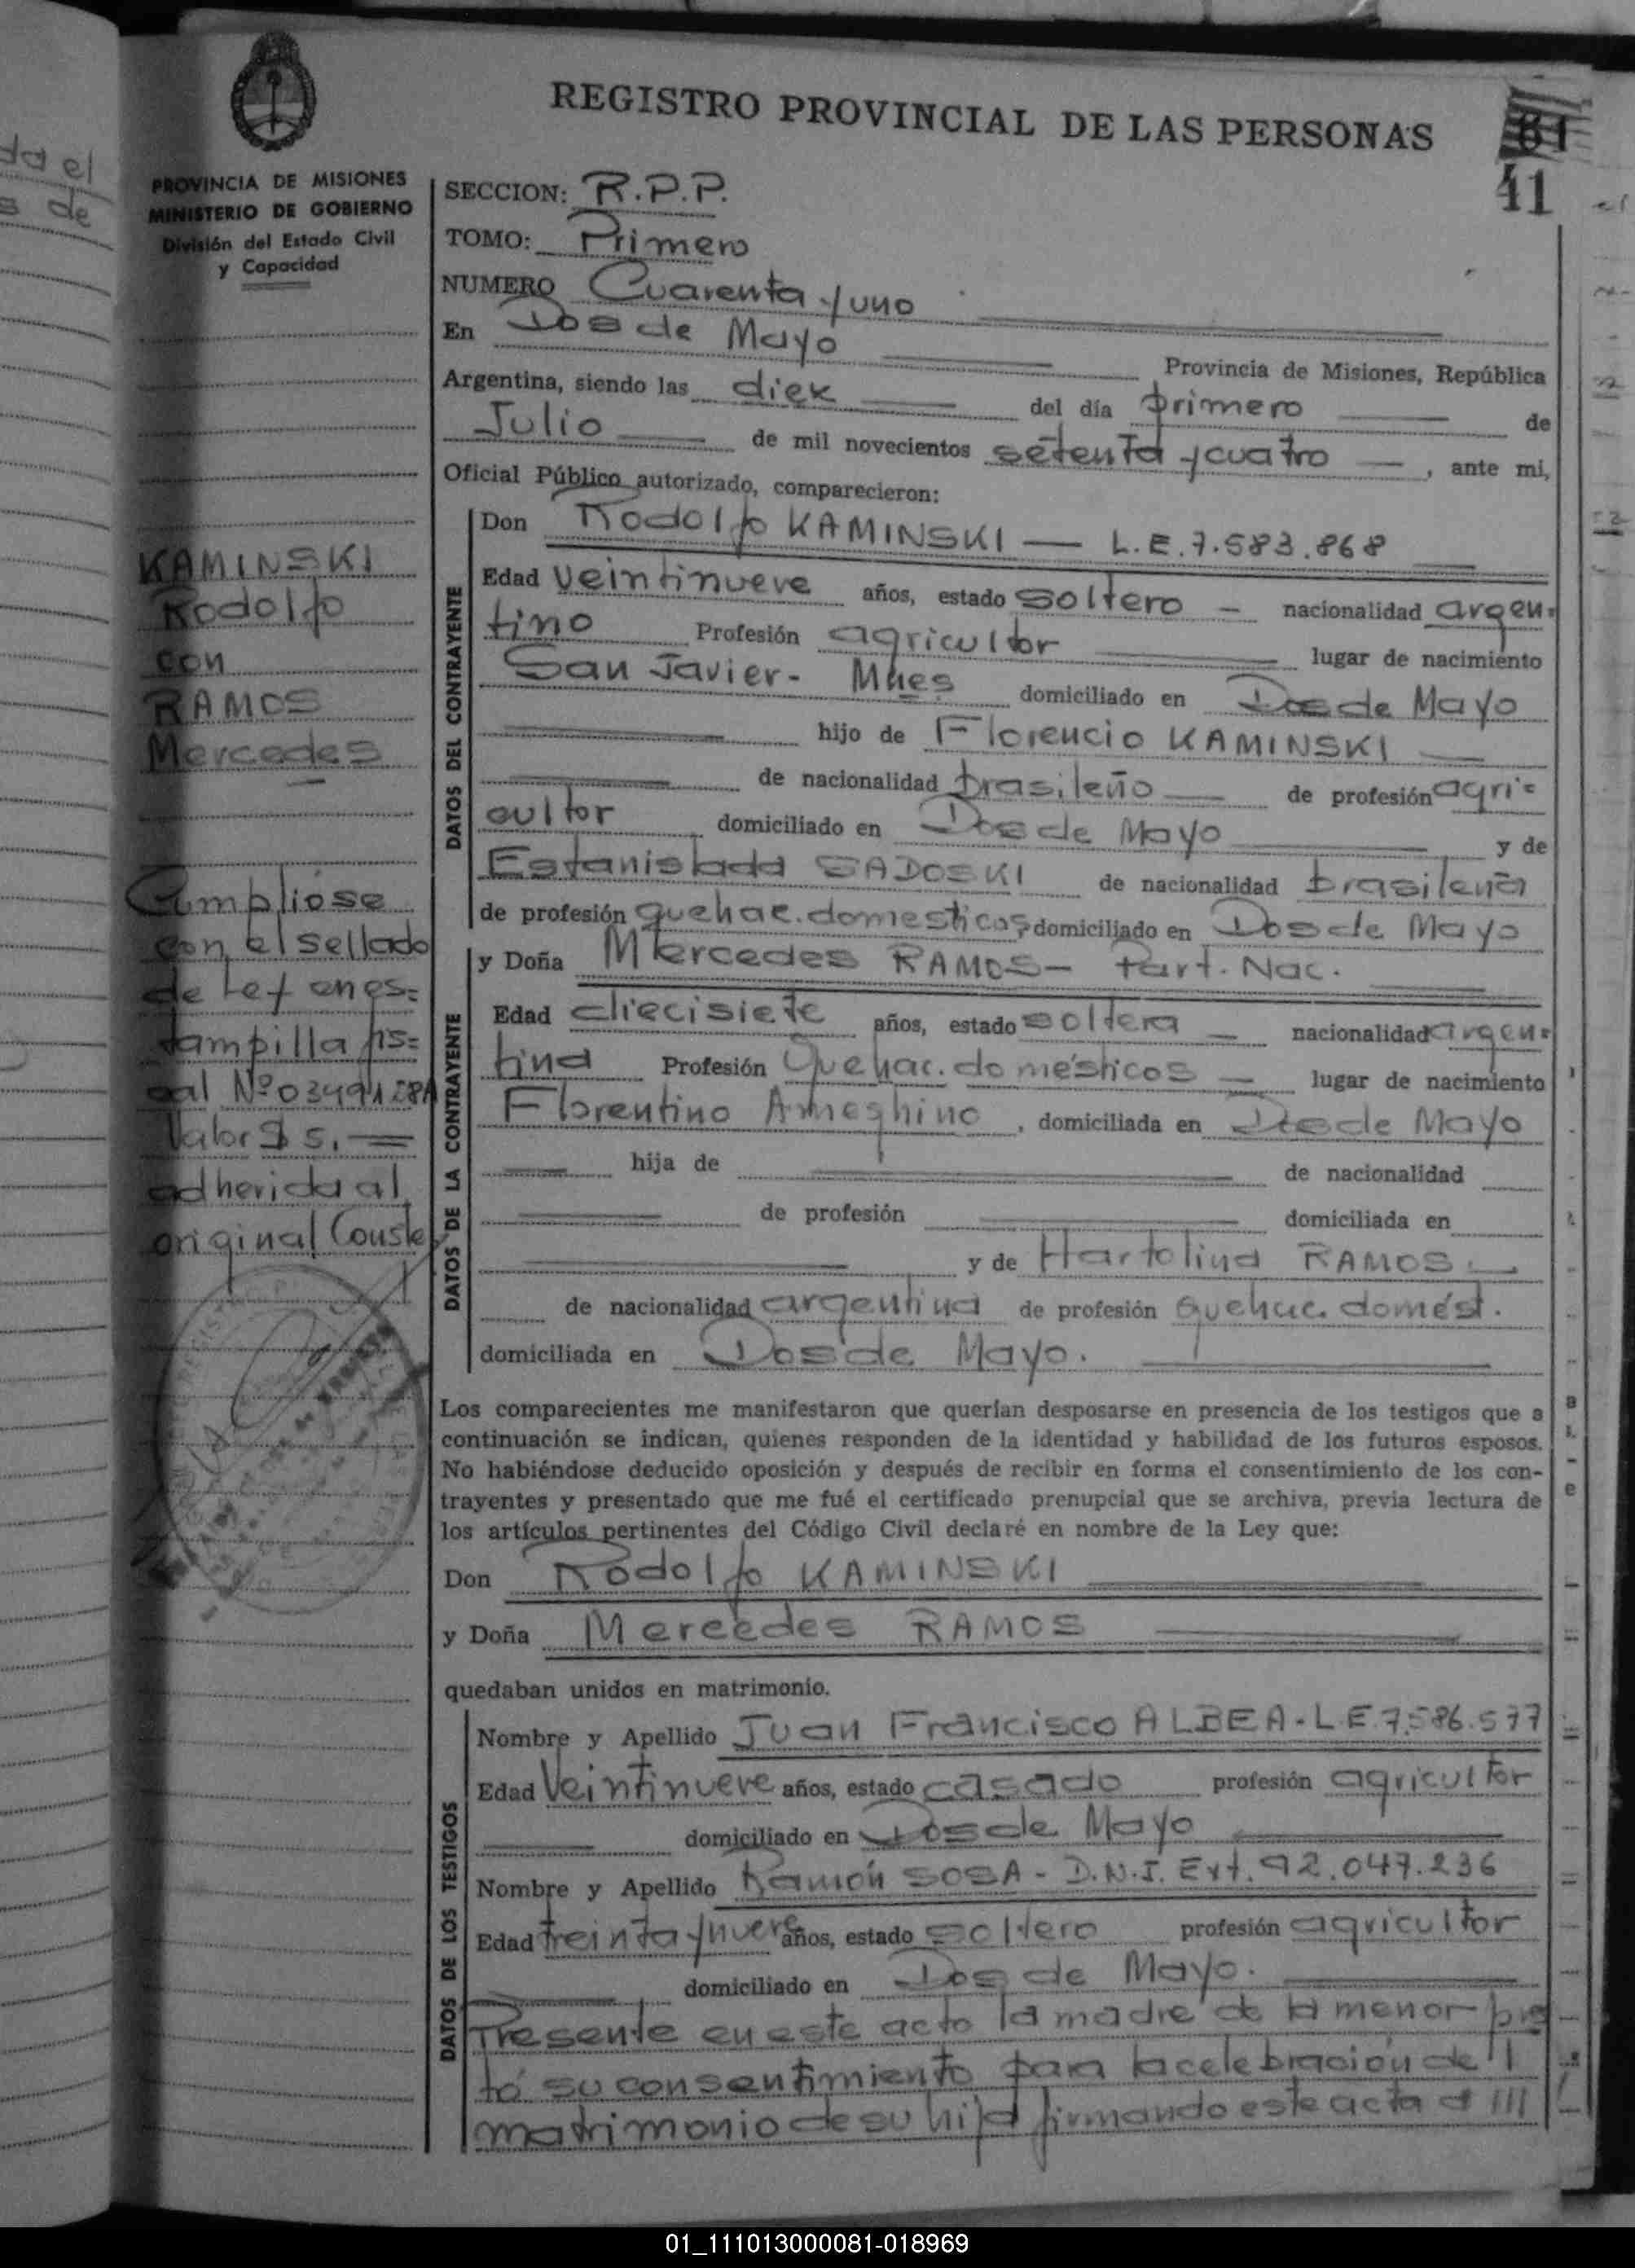 REGISTRO PROVINCIAL DE LAS PERSONAS
61
41
PROVINCIA DE MISIONES
MINISTERIO DE GOBIERNO
División del Estado Civil
y Capacidad
SECCION: R.P.P.
TOMO: Primero
NUMERO Cuarenta y uno
En Dos de Mayo Provincia de Misiones, República
Argentina, siendo las diez del día primero de
Julio de mil novecientos setenta y cuatro, ante mi,
Oficial Público autorizado, comparecieron:
KAMINSKI
Rodolfo
con
RAMOS
Mercedes
Cumplióse
con el sellado
de Ley en es=
tampilla fis=
cal Nº 0349128A
Valor $ 5,=
adherida al
original Conste
DATOS DEL CONTRAYENTE
Don Rodolfo KAMINSKI — L.E.7.583.868
Edad Veintinueve años, estado soltero - nacionalidad argen=
tino Profesión agricultor lugar de nacimiento
San Javier - Mnes domiciliado en Dos de Mayo
hijo de Florencio KAMINSKI
de nacionalidad brasileño de profesión agri=
cultor domiciliado en Dos de Mayo y de
Estanislada SADOSKI de nacionalidad brasileña
de profesión quehac. domesticos domiciliado en Dos de Mayo
DATOS DE LA CONTRAYENTE
y Doña Mercedes RAMOS - Part. Nac.
Edad diecisiete años, estado soltera nacionalidad argen=
tina Profesión Quehac. domésticos lugar de nacimiento
Florentino Ameghino, domiciliada en Dos de Mayo
hija de de nacionalidad
de profesión domiciliada en
y de Hartolina RAMOS
de nacionalidad argentina de profesión quehac. domést.
domiciliada en Dos de Mayo.
Los comparecientes me manifestaron que querían desposarse en presencia de los testigos que a
continuación se indican, quienes responden de la identidad y habilidad de los futuros esposos.
No habiéndose deducido oposición y después de recibir en forma el consentimiento de los con-
trayentes y presentado que me fué el certificado prenupcial que se archiva, previa lectura de
los artículos pertinentes del Código Civil declaré en nombre de la Ley que:
Don Rodolfo KAMINSKI
y Doña Mercedes RAMOS
quedaban unidos en matrimonio.
DATOS DE LOS TESTIGOS
Nombre y Apellido Juan Francisco ALBEA - L.E.7.586.577
Edad Veintinueve años, estado casado profesión agricultor
domiciliado en Dos de Mayo
Nombre y Apellido Ramón SOSA - D.N.I. Ext. 92.047.236
Edad treinta y nueve años, estado soltero profesión agricultor
domiciliado en Dos de Mayo.
Presente en este acto la madre de la menor pres
tó su consentimiento para la celebración del
matrimonio de su hija firmando este acta a ///
01_111013000081-018969